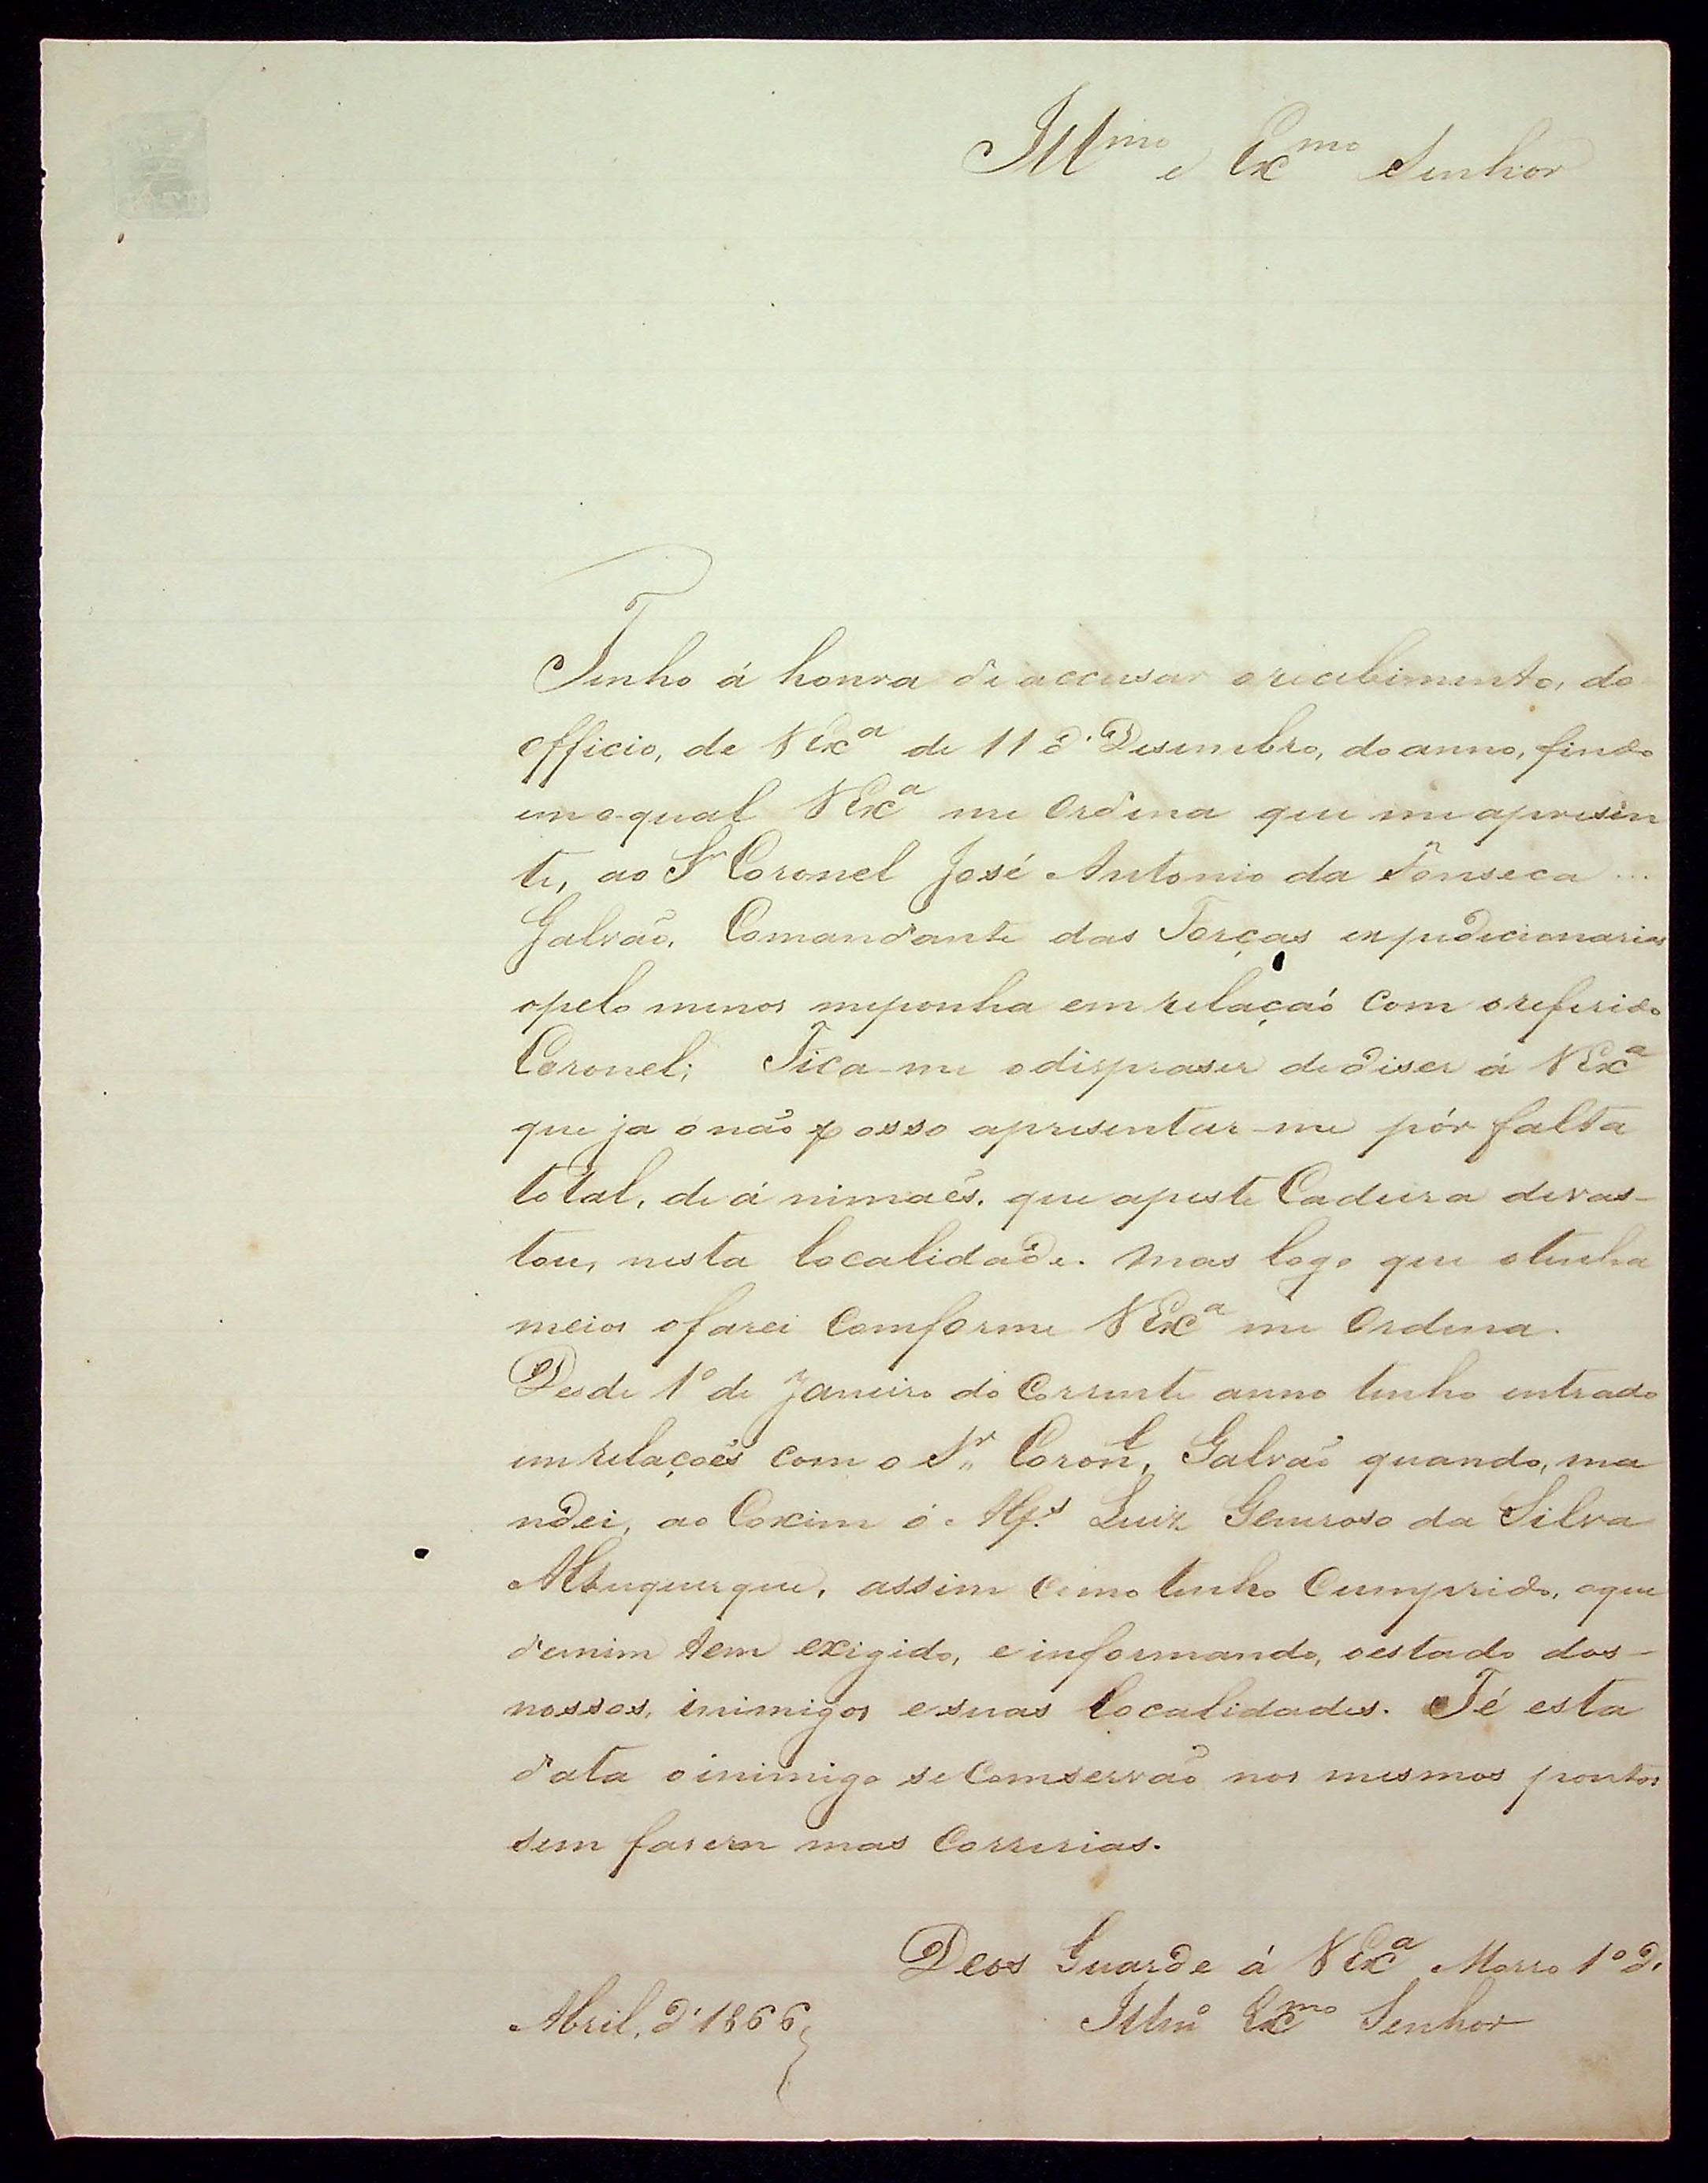 Illmo e Exmo Senhor
Tenho á honra de accusar o recebimento, do
officio, de VExa de 11 d' Desembro, do anno, findo
em o qual VExa me Ordena que me apresen
te, ao Sr Coronel José Antonio da Fonseca ...
Galvão, Comandante das Forças expedicionarias
o pelo menos me ponha em relação com o referido
Coronel; Fica-me o dispraser de diser á VExa
que ja o não posso apresentar-me pór falta
total, de á nimaes, que apeste Cadeira devas-
tou, nesta localidade. Mas logo que o tenha
meios o farei Comforme VExa me Ordena.
Desde 1º de Janeiro do Corrente anno tenho entrado
em relações com o Sr Coronl, Galvão quando, ma
ndei, ao Coxim o Alfs Luiz Generoso da Silva
Albuquerque, assim como tenho Cumprido, o que
de mim tem exigido, e informando, o estado dos-
nossos, inimigos e suas localidades. Té esta
data o inimigo se Comservão nos mesmos pontos
sem faserem mas Correrias.
Deos Guarde á VExa Morro 1º d'
Abril, d' 1866 Illmo Exmo Senhor